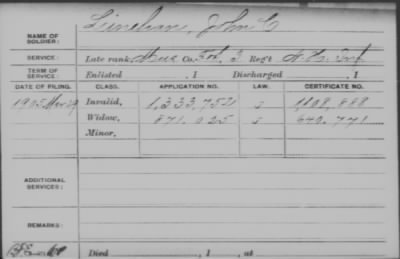 Linehan, John C
NAME OF SOLDIER:
SERVICE: Late rank, Mus Co. 3 Reg't N.H. Inf
TERM OF SERVICE: Enlisted , 1 Discharged , 1
DATE OF FILING. CLASS. APPLICATION NO. LAW. CERTIFICATE NO.
1905 Mar 29 Invalid, 1,333,752 s 1108,888
Widow, 871,025 s 640,771
Minor,
ADDITIONAL SERVICES:
REMARKS:
Died , 1 , at